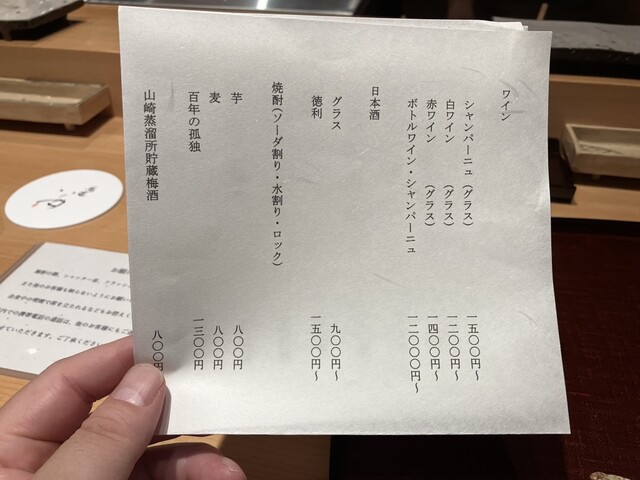 ワイン
シャンパーニュ (グラス) 一五〇〇円～
白ワイン (グラス) 一二〇〇円～
赤ワイン (グラス) 一四〇〇円～
ボトルワイン・シャンパーニュ 一二〇〇〇円～
日本酒
グラス 九〇〇円～
徳利 一五〇〇円～
焼酎 (ソーダ割り・水割り・ロック)
芋 八〇〇円
麦 八〇〇円
百年の孤独 一三〇〇円
山崎蒸溜所貯蔵梅酒 八〇〇円